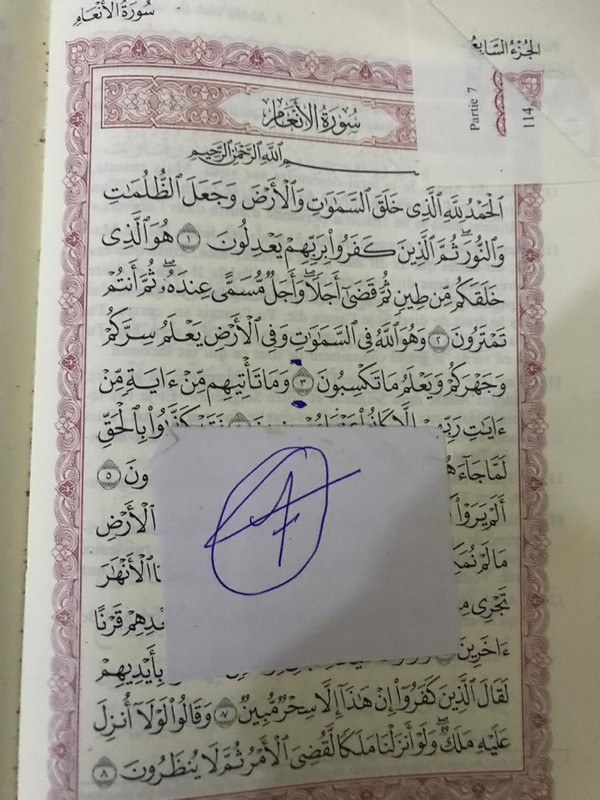 سُورَةُ الأَنْعَام
الجُزْءُ السَّابِعُ
Partie 7
114
سُورَةُ الْأَنْعَامِ
بِسْمِ اللَّهِ الرَّحْمَٰنِ الرَّحِيمِ
الْحَمْدُ لِلَّهِ الَّذِي خَلَقَ السَّمَٰوَٰتِ وَالْأَرْضَ وَجَعَلَ الظُّلُمَٰتِ
وَالنُّورَ ۖ ثُمَّ الَّذِينَ كَفَرُوا بِرَبِّهِمْ يَعْدِلُونَ ١ هُوَ الَّذِي
خَلَقَكُم مِّن طِينٍ ثُمَّ قَضَىٰ أَجَلًا ۖ وَأَجَلٌ مُّسَمًّى عِندَهُ ۖ ثُمَّ أَنتُمْ
تَمْتَرُونَ ٢ وَهُوَ اللَّهُ فِي السَّمَٰوَٰتِ وَفِي الْأَرْضِ يَعْلَمُ سِرَّكُمْ
وَجَهْرَكُمْ وَيَعْلَمُ مَا تَكْسِبُونَ ٣ وَمَا تَأْتِيهِم مِّنْ ءَايَةٍ مِّنْ
ءَايَٰتِ رَبِّهِمْ إِلَّا كَانُوا عَنْهَا فَقَدْ كَذَّبُوا بِالْحَقِّ
لَمَّا جَاءَهُ ونَ ٥
أَلَمْ يَرَوْا الْأَرْضِ
مَا لَمْ نُمَكِّ الْأَنْهَٰرَ
تَجْرِي مِ بَعْدِهِمْ قَرْنًا
ءَاخَرِينَ بِأَيْدِيهِمْ
لَقَالَ الَّذِينَ كَفَرُوا إِنْ هَٰذَا إِلَّا سِحْرٌ مُّبِينٌ ٧ وَقَالُوا لَوْلَا أُنزِلَ
عَلَيْهِ مَلَكٌ ۖ وَلَوْ أَنزَلْنَا مَلَكًا لَّقُضِيَ الْأَمْرُ ثُمَّ لَا يُنظَرُونَ ٨